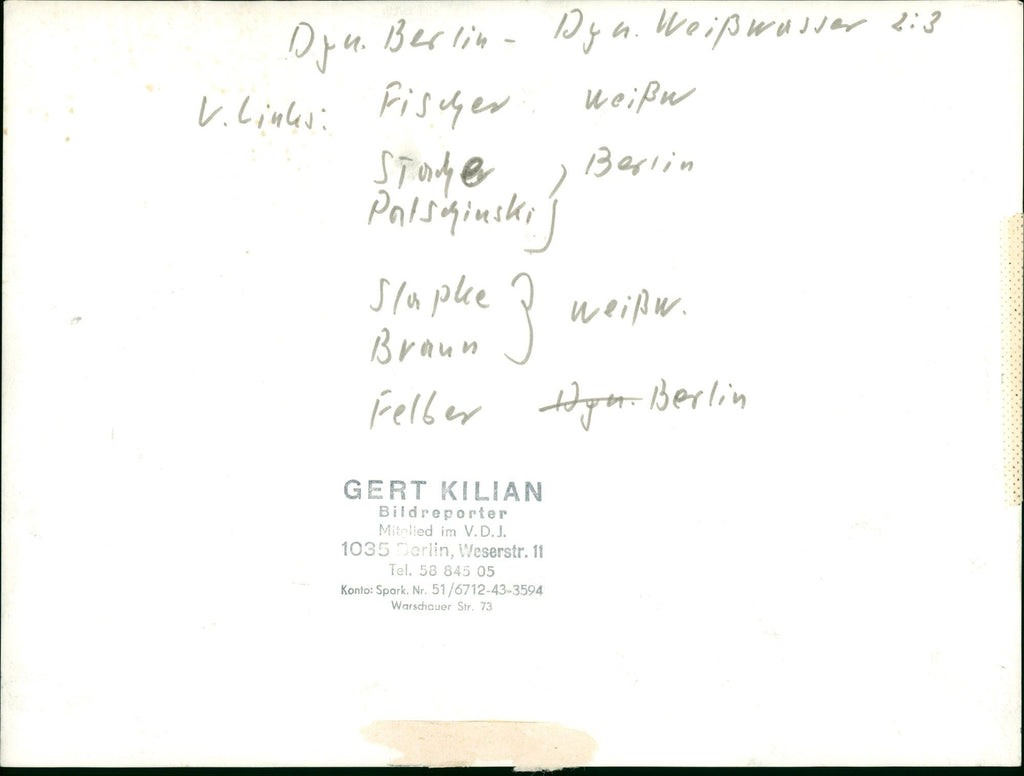 Dyn. Berlin - Dyn. Weißwasser 2:3
V. Links: Fischer Weißw
Stacher } Berlin
Patschinski
Slapke } Weißw.
Braun
Felber Dyn. Berlin
GERT KILIAN
Bildreporter
Mitglied im V.D.J.
1035 Berlin, Weserstr. 11
Tel. 58 845 05
Konto: Spark. Nr. 51/6712-43-3594
Warschauer Str. 73